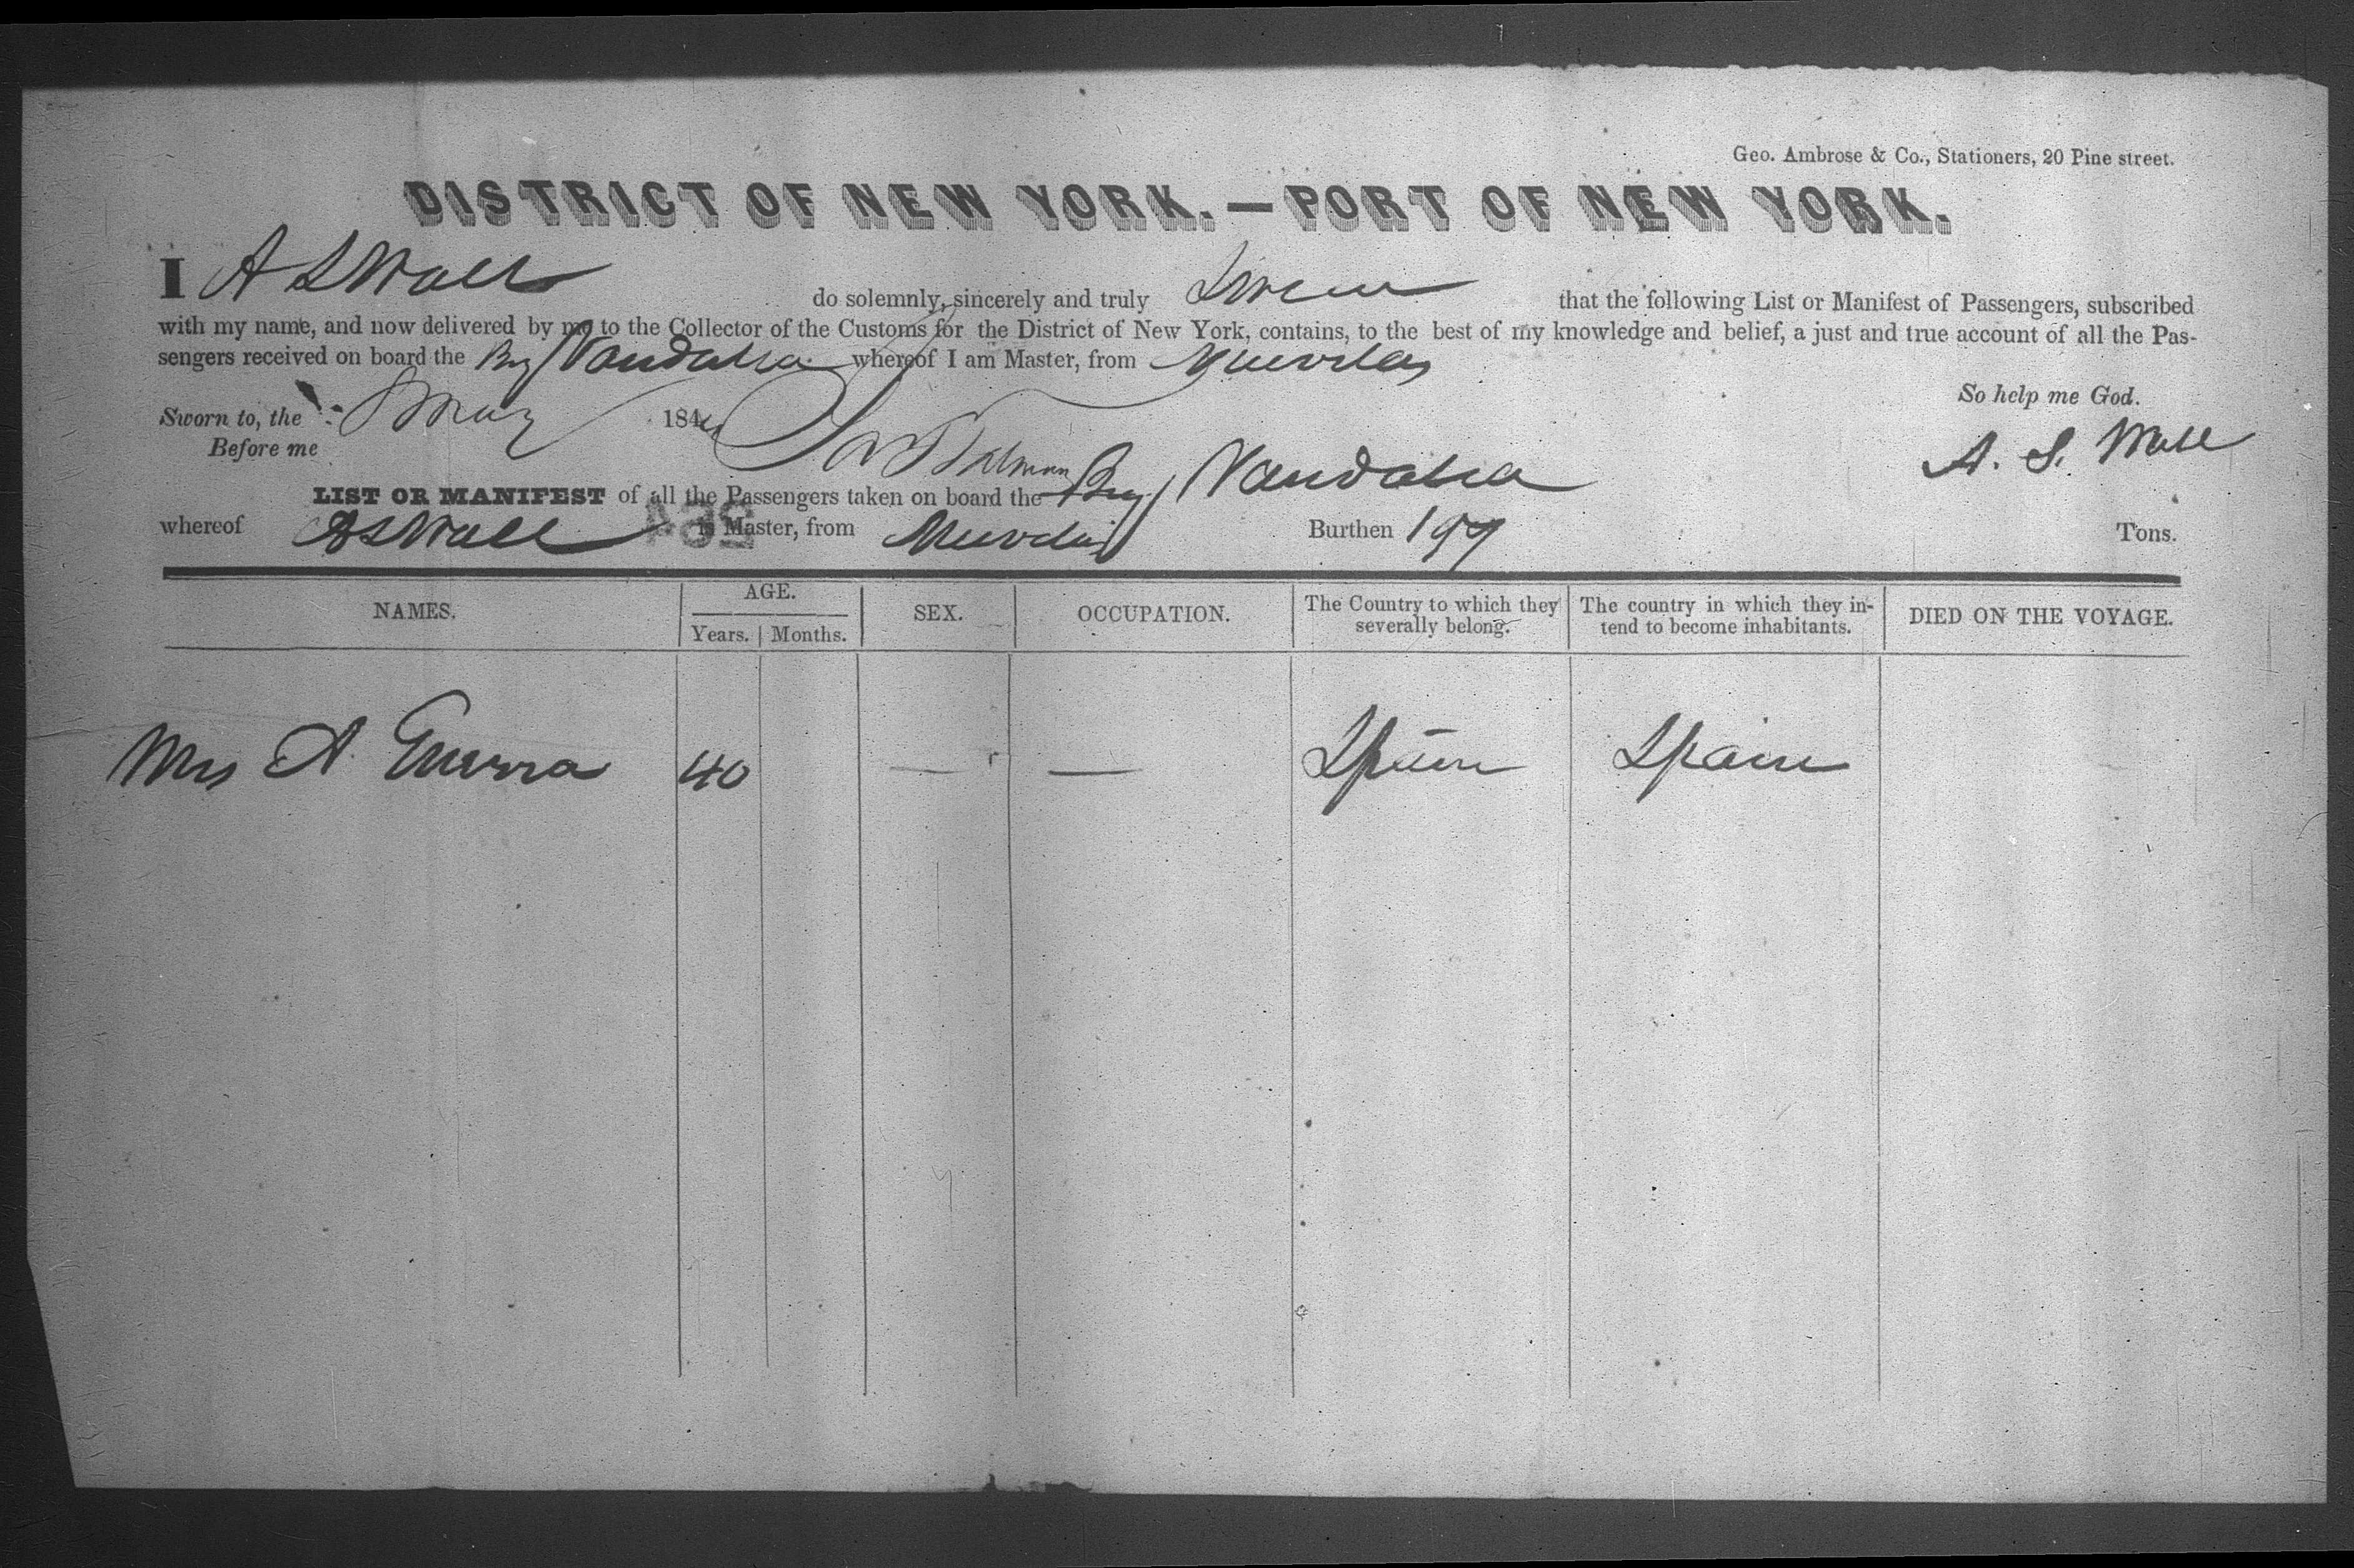 Geo. Ambrose & Co., Stationers, 20 Pine street.
DISTRICT OF NEW YORK.—PORT OF NEW YORK.
I A S Wall do solemnly, sincerely and truly Swear that the following List or Manifest of Passengers, subscribed
with my name, and now delivered by me to the Collector of the Customs for the District of New York, contains, to the best of my knowledge and belief, a just and true account of all the Pas-
sengers received on board the Brig Vandalia whereof I am Master, from Nuevitas
So help me God.
Sworn to, the May 184
Before me
A. S. Wall
LIST OR MANIFEST of all the Passengers taken on board the Brig Vandalia
whereof A S Wall is Master, from Nuevitas Burthen 199 Tons.
NAMES. AGE. Years. Months. SEX. OCCUPATION. The Country to which they severally belong. The country in which they in-tend to become inhabitants. DIED ON THE VOYAGE.
Mrs A. Guerra 40 — — Spain Spain